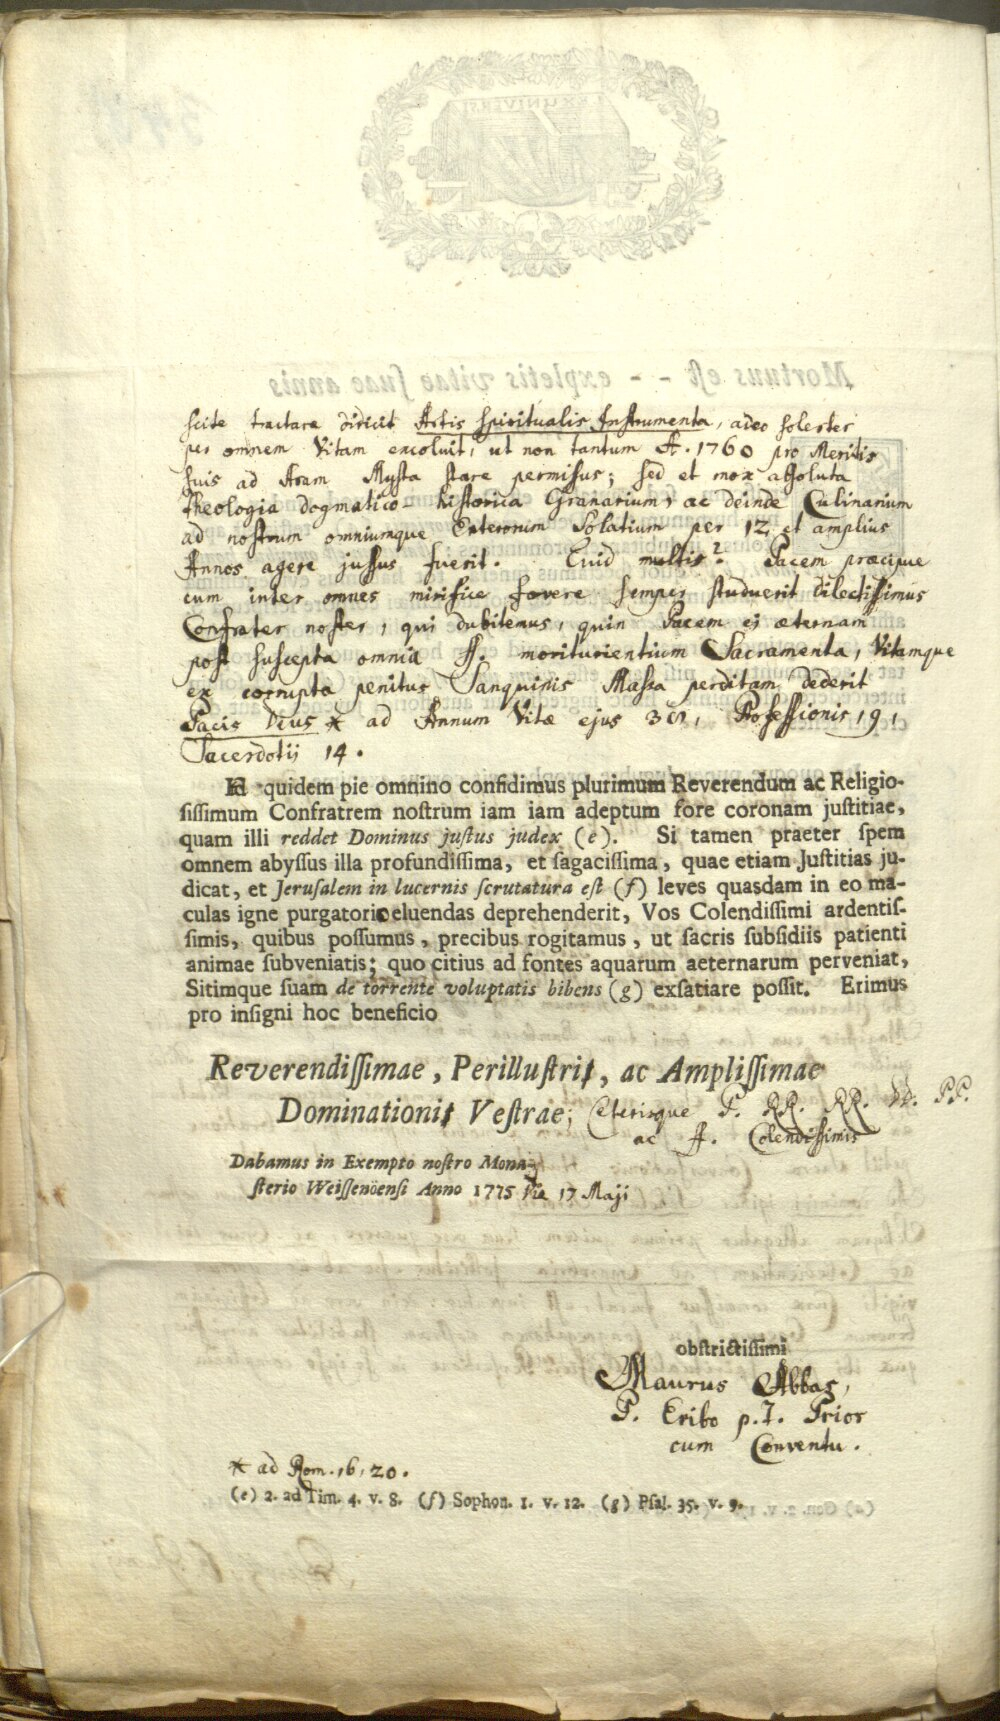 scite tractare didicit Artis spiritualis Instrumenta, adeo solerter
per omnem Vitam excoluit, ut non tantum A. 1760 pro Meritis
suis ad Aram Mysta stare permissus; sed et mox absoluta
Theologia dogmatico-historica Granarium, ac deinde Culinarium
ad nostrum omniumque Exterorum Solatium per 12 et amplius
Annos agere jussus fuerit. Quid multis? Pacem præcipue
cum inter omnes mirifice fovere semper studuerit dilectissimus
Confrater noster, qui dubitemus, quin Pacem ei æternam
post suscepta omnia SS. moriturientium Sacramenta, Vitamque
ex corrupta penitus Sanguinis Massa perditam dederit
Pacis Deus * ad Annum Vitæ ejus Professionis 19,
Sacerdotii 14.
quidem pie omnino confidimus plurimum Reverendum ac Religio-
sissimum Confratrem nostrum iam iam adeptum fore coronam justitiae,
quam illi reddet Dominus justus judex (e). Si tamen praeter spem
omnem abyssus illa profundissima, et sagacissima, quae etiam Justitias ju-
dicat, et Jerusalem in lucernis scrutatura est (f) leves quasdam in eo ma-
culas igne purgatorio eluendas deprehenderit, Vos Colendissimi ardentis-
simis, quibus possumus, precibus rogitamus, ut sacris subsidiis patienti
animae subveniatis; quo citius ad fontes aquarum aeternarum perveniat,
Sitimque suam de torrente voluptatis bibens (g) exsatiare possit. Erimus
pro insigni hoc beneficio
Reverendissimae, Perillustris, ac Amplissimae
Dominationis Vestrae; Ceterisque P. RR. RR. DD. P.P.
ac ff. Colendissimis
Dabamus in Exempto nostro Mona-
sterio Weissenöensi Anno 1775 Die 17 Maji
obstrictissimi
Maurus Abbas,
P. Eribo p.t. Prior
cum Conventu.
* ad Rom. 16, 20.
(e) 2. ad Tim. 4. v. 8. (f) Sophon. 1. v. 12. (g) Psal. 35. v. 9.